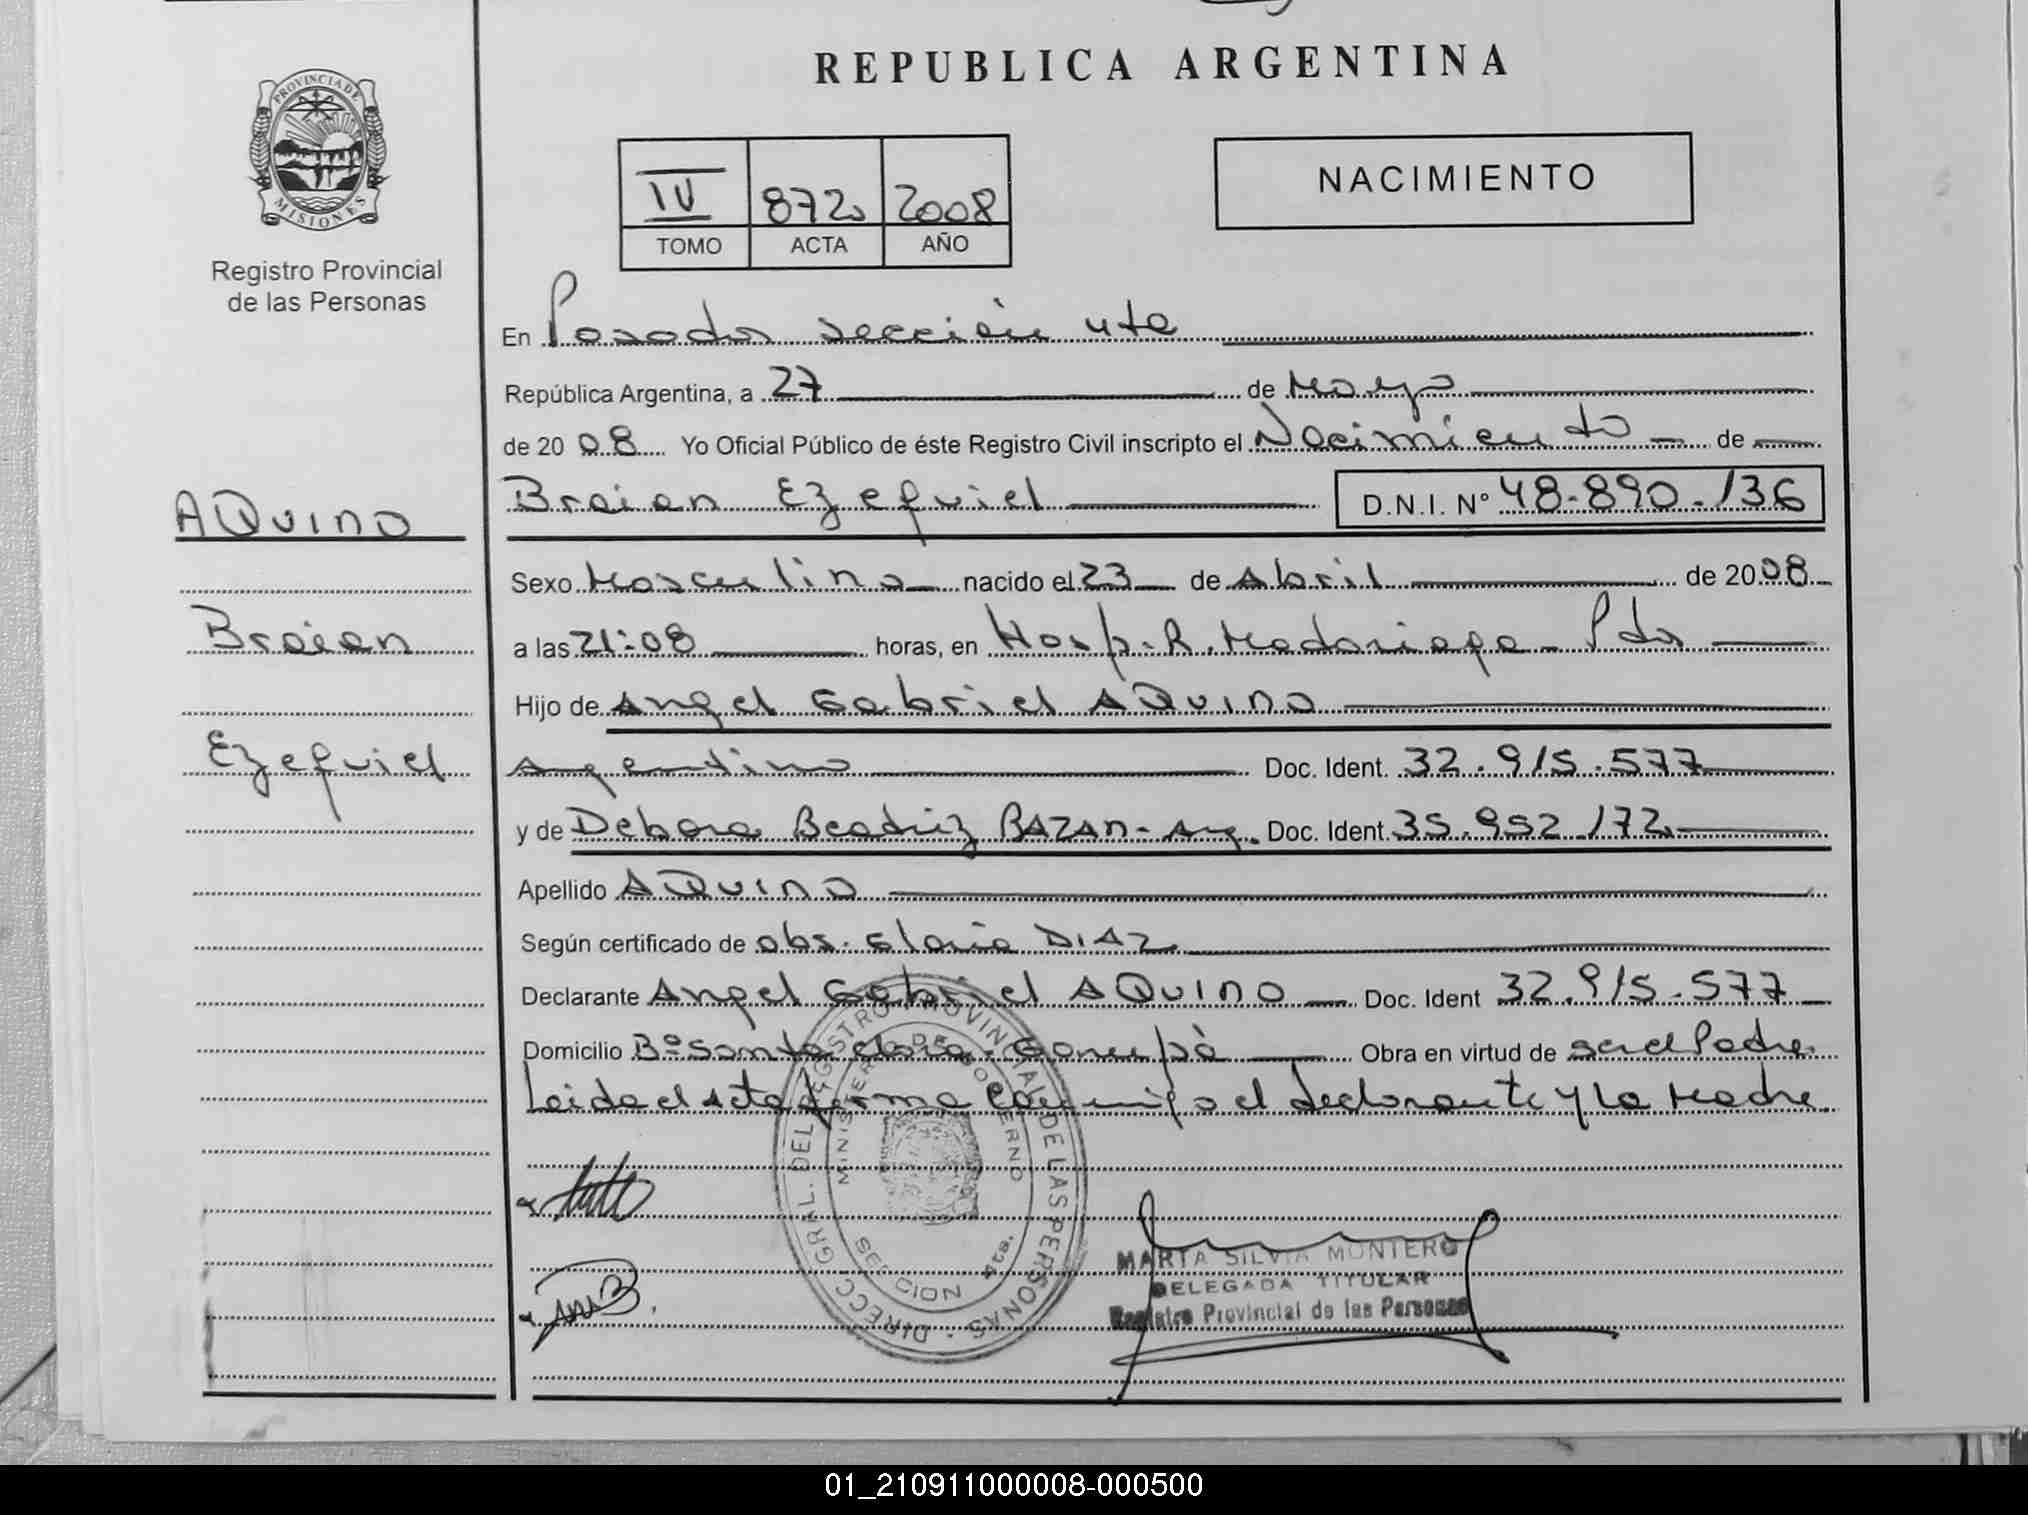 REPUBLICA ARGENTINA
PROVINCIA DE
MISIONES
Registro Provincial
de las Personas
IV 872 2008
TOMO ACTA AÑO
NACIMIENTO
En Posadas sección 4ta
República Argentina, a 27 de Mayo
de 2008 Yo Oficial Público de éste Registro Civil inscripto el Nacimiento de
AQUINO
Braian
Ezequiel
Braian Ezequiel D.N.I. Nº 48.890.136
Sexo Masculino nacido el 23 de Abril de 2008
a las 21:08 horas, en Hosp. R. Madariaga - Pdas
Hijo de Angel Gabriel AQUINO
Argentino Doc. Ident. 32.915.577
y de Debora Beatriz BAZAN - Arg. Doc. Ident. 35.952.172
Apellido AQUINO
Según certificado de obs. Gloria DIAZ
Declarante Angel Gabriel AQUINO Doc. Ident 32.915.577
Domicilio Bº Santa Clara. Garupá Obra en virtud de ser el Padre
Leida el Acta firma conmigo el declarante y la Madre
DIRECC. GRAL. DEL REGISTRO PROVINCIAL DE LAS PERSONAS
MINISTERIO DE GOBIERNO
SECCION 4ta.
MARTA SILVIA MONTERO
DELEGADA TITULAR
Registro Provincial de las Personas
01_210911000008-000500